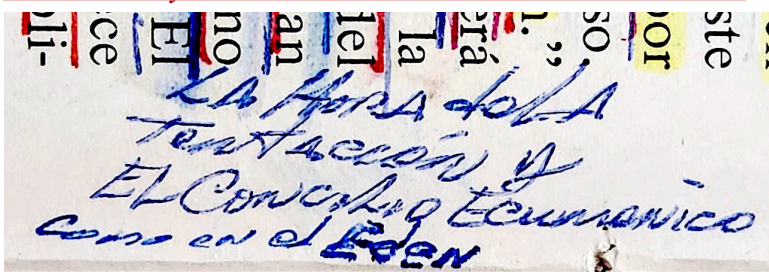 ste
por
so.
n.”
erá
la
del
an
no
El
ce
oli-
LA HORA de LA
Tentación y
EL Concilio Ecumenico
como en el Eden